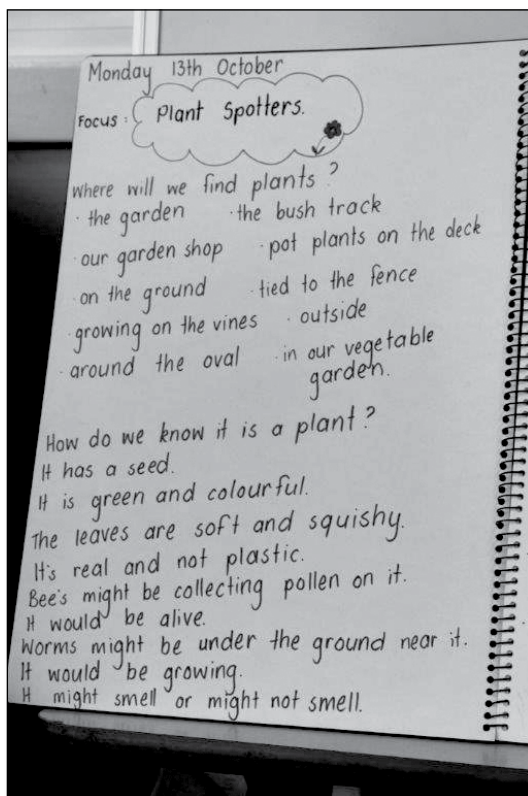 Monday 13th October
Focus: Plant Spotters.
Where will we find plants?
· the garden · the bush track
· our garden shop · pot plants on the deck
· on the ground · tied to the fence
· growing on the vines · outside
· around the oval · in our vegetable
garden.
How do we know it is a plant?
It has a seed.
It is green and colourful.
The leaves are soft and squishy.
It's real and not plastic.
Bee's might be collecting pollen on it.
It would be alive.
Worms might be under the ground near it.
It would be growing.
It might smell or might not smell.